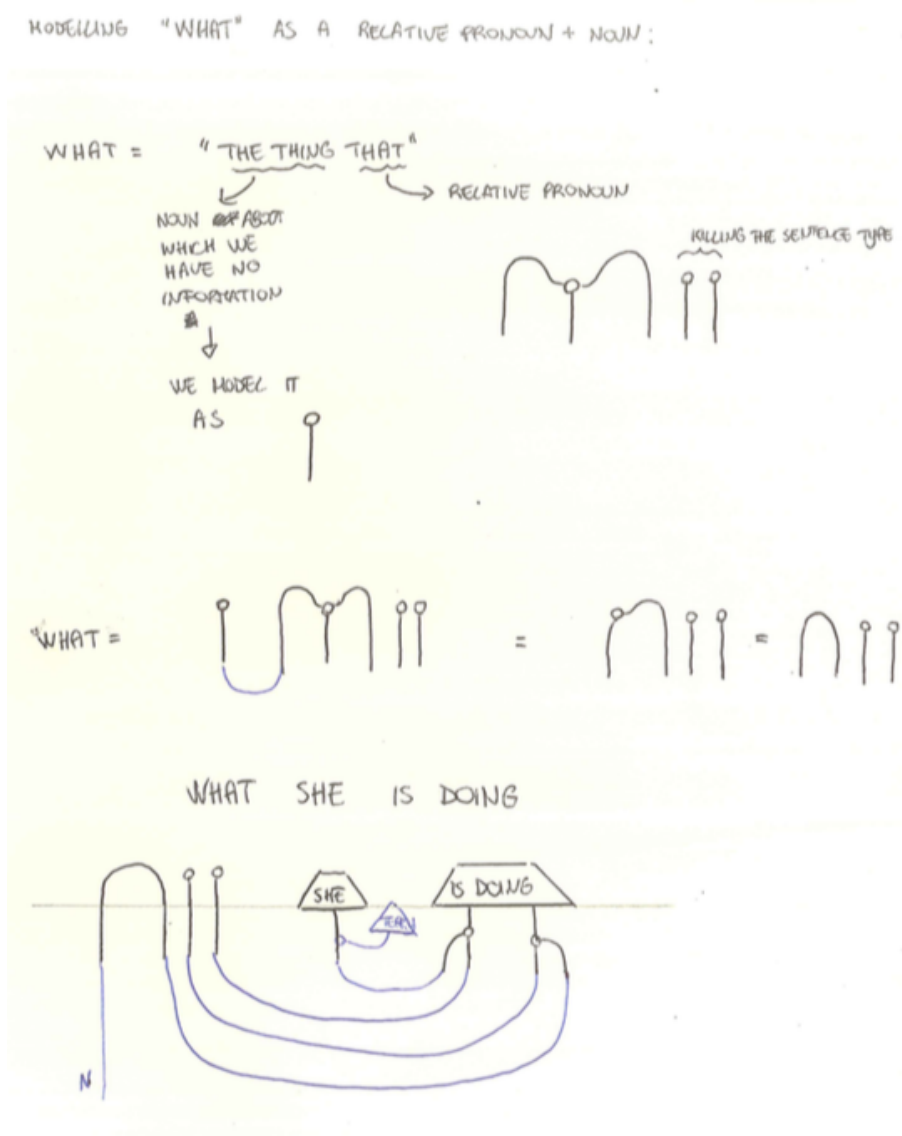 MODELLING "WHAT" AS A RELATIVE PRONOUN + NOUN:
WHAT = "THE THING THAT"
RELATIVE PRONOUN
NOUN ABOUT
WHICH WE
HAVE NO
INFORMATION
KILLING THE SENTENCE TYPE
WE MODEL IT
AS
"WHAT = = =
WHAT SHE IS DOING
SHE
IS DOING
N